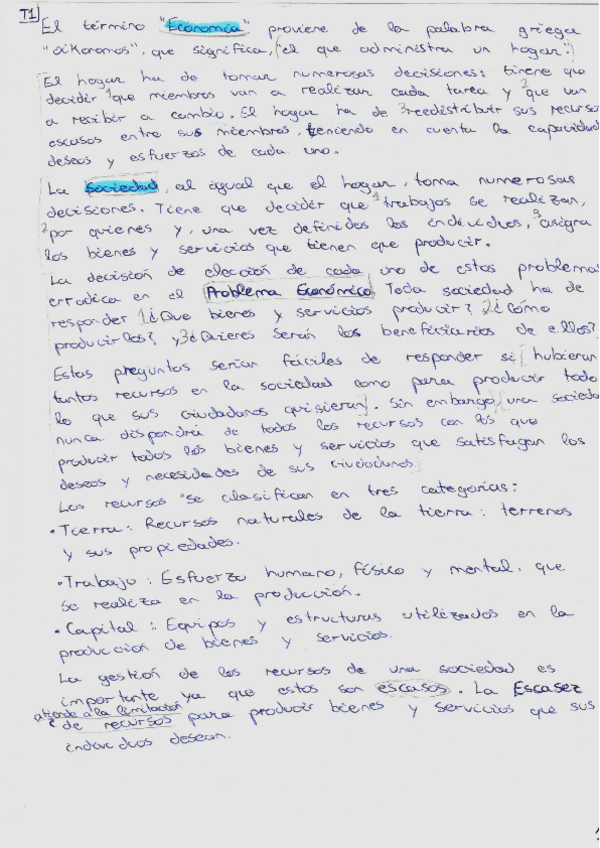 T1
El término "Economía" proviene de la palabra griega
"oikonomos", que significa, "el que administra un hogar".
El hogar ha de tomar numerosas decisiones: tiene que
decidir 1 que miembros van a realizar cada tarea y 2 que van
a recibir a cambio. El hogar ha de 3 reedistribuir sus recursos
escasos entre sus miembros, teniendo en cuenta la capacidad
deseos y esfuerzos de cada uno.
La sociedad, al igual que el hogar, toma numerosas
decisiones. Tiene que decidir que 1 trabajos se realizan,
2 por quienes y, una vez definidos los individuos, 3 asigna
los bienes y servicios que tienen que producir.
La decisión de elección de cada uno de estos problemas
erradica en el Problema Económico. Toda sociedad ha de
responder 1 ¿Que bienes y servicios producir? 2 ¿Cómo
producirlos? y 3 ¿Quienes serán los beneficiarios de ellos?
Estas preguntas serían fáciles de responder si [hubieran
tantos recursos en la sociedad como para producir todo
lo que sus ciudadanos quisieran]. Sin embargo [una sociedad
nunca dispondrá de todos los recursos con los que
producir todos los bienes y servicios que satisfagan los
deseos y necesidades de sus ciudadanos]
Los recursos se clasifican en tres categorías:
• Tierra: Recursos naturales de la tierra: terrenos
y sus propiedades.
• Trabajo: Esfuerzo humano, físico y mental, que
se realiza en la producción.
• Capital: Equipos y estructuras utilizados en la
produccion de bienes y servicios.
La gestión de los recursos de una sociedad es
importante ya que estos son escasos. La Escasez
atiende a la limitación
de recursos para producir bienes y servicios que sus
individuos desean.
1